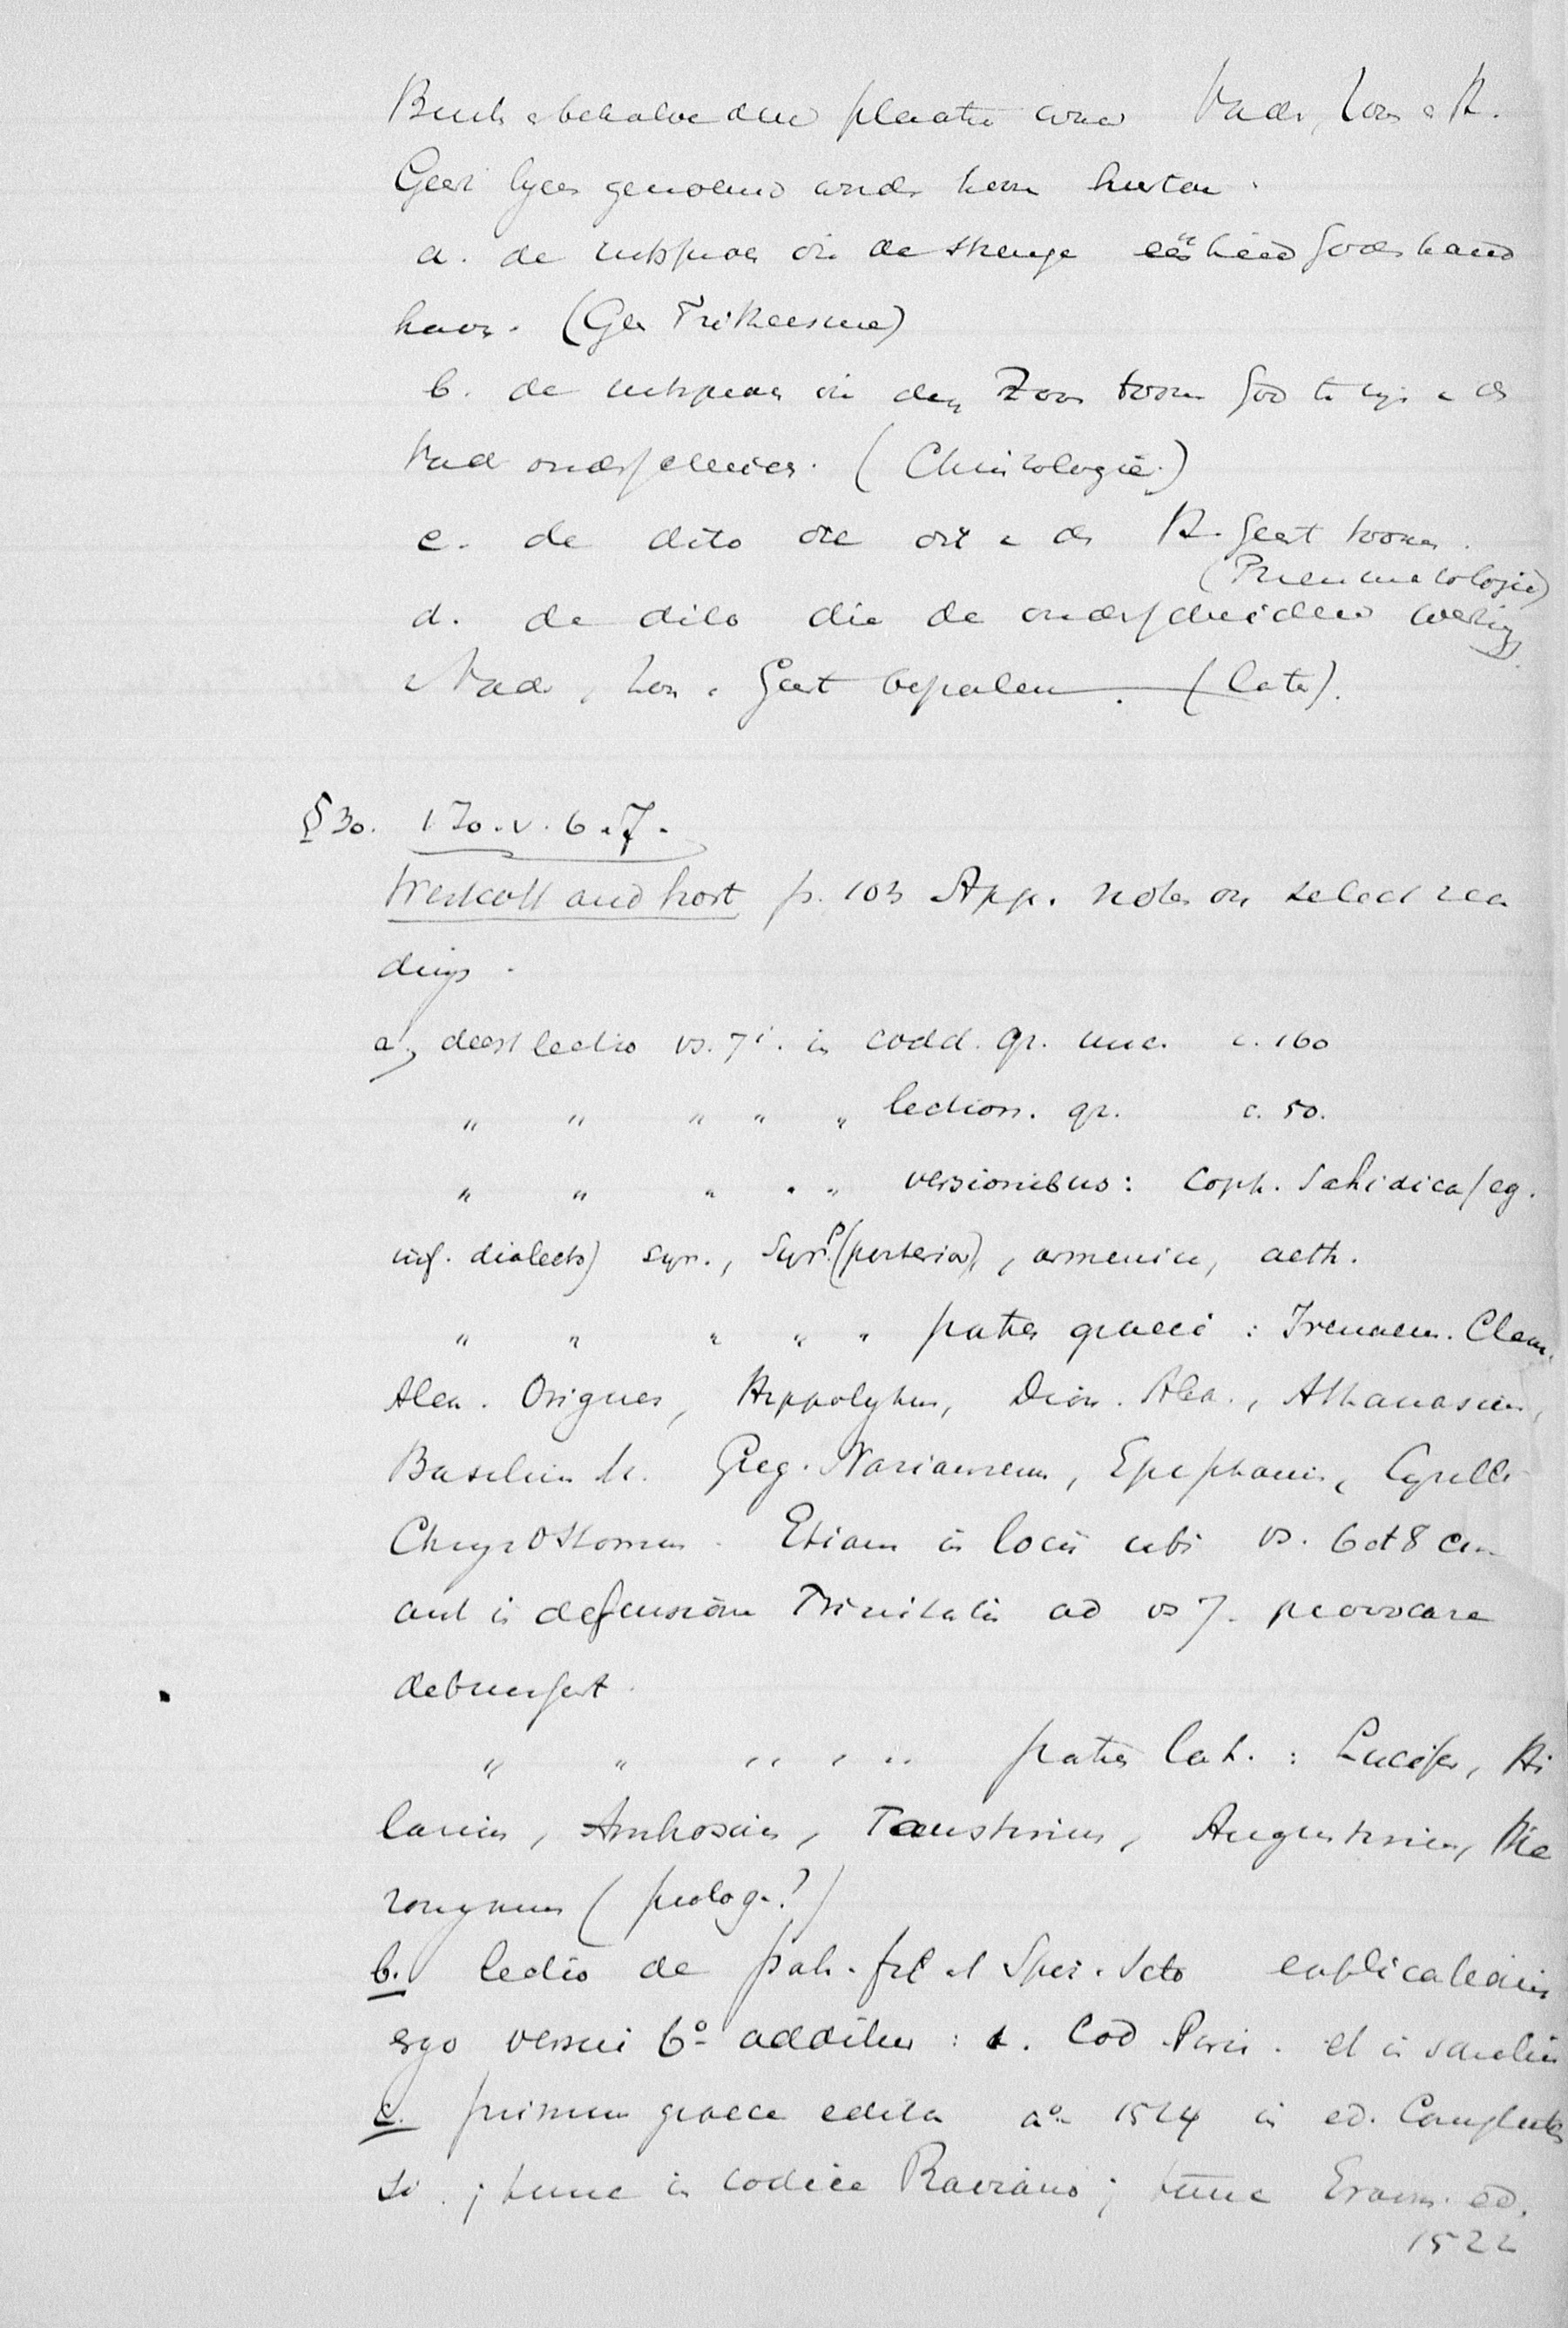 Buiten behalve den plaatsen waar Vader, Zoon & H.
Geest genoemd worden
a. de uitspraken die de strenge eenheid Gods hand
haven. (Geen Tritheisme)
b. de uitspraken die den Zoon tonen God te zijn & de
Vader onderscheiden. (Christologie.)
c. de dito die dit & de H. Geest tonen.
(Pneumatologie)
d. de dito die de onderscheiden werking
Vader, Zoon & Geest bepalen. (later).
§ 30. 1 Jo. v. 6. 7.
Westcott and hort p. 103 App. notes on select rea
dings.
a, deest lectio vs. 7i. in codd. gr. unc. c. 160
" " " " " lection. gr. c. 50.
" " " " " versionibus: Coph. Sahidica (eg.
inf. dialecto) syr., Syr.p (posterior), armenica, aeth.
" " " " " patres graeci: Irenaeus. Clem.
Alex. Origenes, Hippolytus, Dion. Alex., Athanasius,
Basilius M. Greg. Nazianzenus, Epiphanius, Cyrillus
Chrysostomus. Etiam in locis ubi vs. 6 et 8
aut in defensione Trinitatis ad vs 7. provocare
debuissent.
" " " " " patres lat.: Lucifer, Hi
larius, Ambrosius, Faustinus, Augustinus, Hie
ronymus (prolog.?)
b. lectio de pat. fil. et Spir. Scto explicationis
ergo versui 6o additur: 1. Cod. Paris. et in
c. primum graece edita ao 1514 in ed. Complutens
si; tunc in codice Raviano; tunc Erasm. ed.
1522